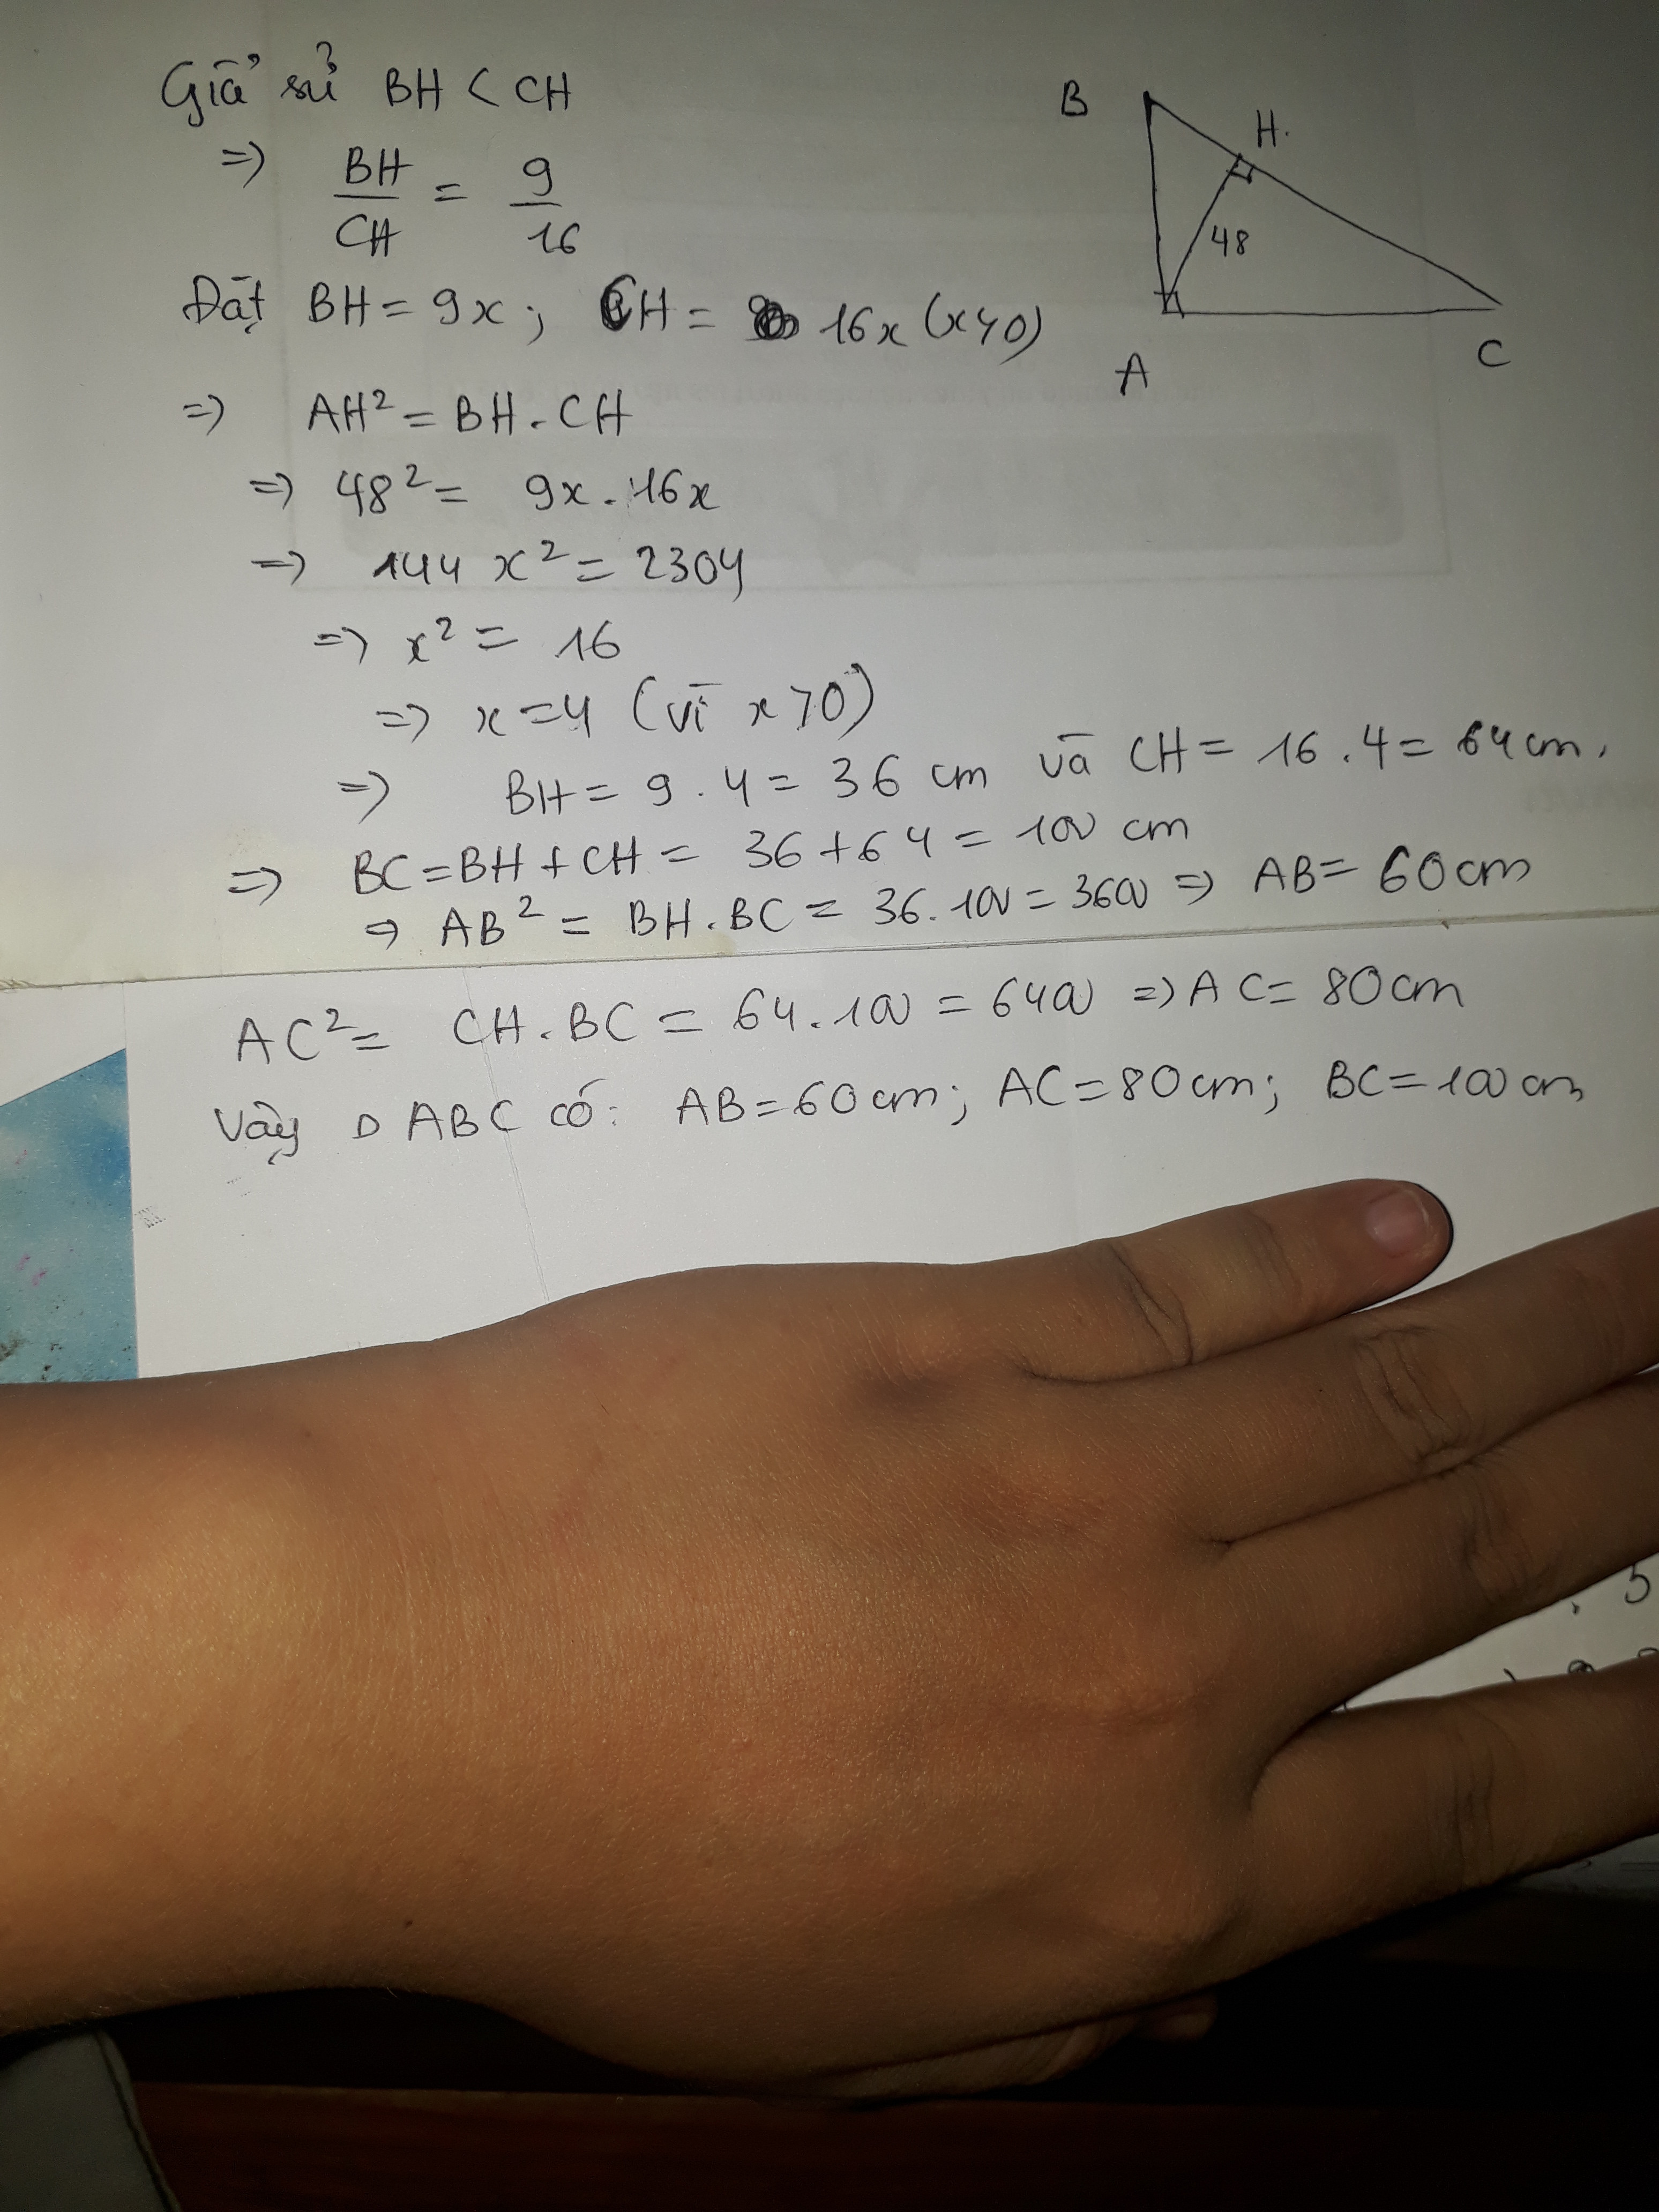 Giả sử BH < CH
=> BH/CH = 9/16
Đặt BH = 9x; CH = 16x (x>0)
=> AH² = BH . CH
=> 48² = 9x . 16x
=> 144 x² = 2304
=> x² = 16
=> x = 4 (vì x > 0)
=> BH = 9 . 4 = 36 cm và CH = 16 . 4 = 64 cm.
=> BC = BH + CH = 36 + 64 = 100 cm
=> AB² = BH . BC = 36 . 100 = 3600 => AB = 60 cm
AC² = CH . BC = 64 . 100 = 6400 => AC = 80 cm
Vậy Δ ABC có: AB = 60 cm; AC = 80 cm; BC = 100 cm
B
H.
48
A
C
5